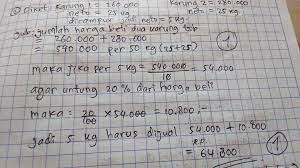 ② diket. karung 1 = 260.000 karung 2 = 280.000
neto = 25 kg neto = 25 kg.
dicampur jadi neto = 5 kg.
jwb. jumlah harga beli dua karung tsb
260.000 + 280.000
= 540.000 per 50 kg (25+25)
①
maka jika per 5 kg = 540.000 / 10 = 54.000
agar untung 20 % dari harga beli
maka : 20/100 x 54.000 = 10.800,-
jadi 5 kg harus dijual 54.000 + 10.800
= Rp. 64.800
①